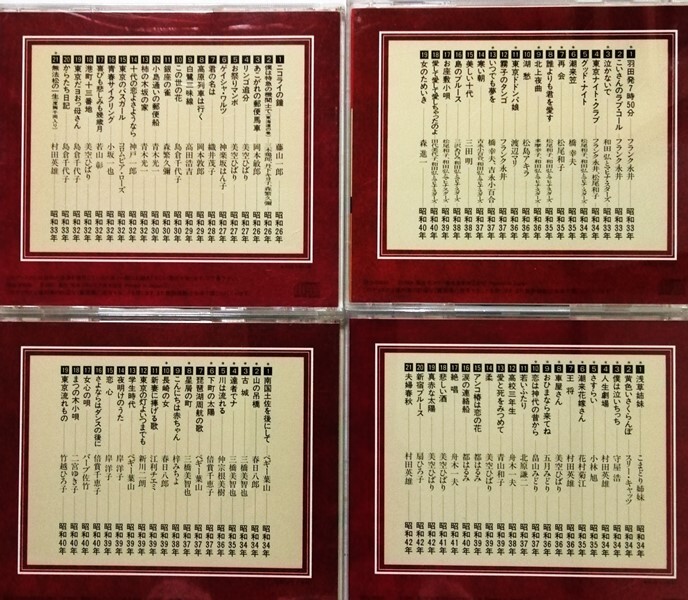 1 ニコライの鐘 藤山一郎 昭和26年
2 僕は特急の機関士で(東海道の巻) 三木鶏郎、丹下キヨ子、森繁久彌 昭和26年
3 あこがれの郵便馬車 岡本敦郎 昭和26年
4 リンゴ追分 美空ひばり 昭和27年
5 お祭りマンボ 美空ひばり 昭和27年
6 ゲイシャ・ワルツ 神楽坂はん子 昭和27年
7 君の名は 織井茂子 昭和28年
8 高原列車は行く 岡本敦郎 昭和29年
9 白鷺三味線 高田浩吉 昭和29年
10 この世の花 島倉千代子 昭和30年
11 銀座の雀 森繁久彌 昭和30年
12 小島通いの郵便船 青木光一 昭和30年
13 柿の木坂の家 青木光一 昭和32年
14 十代の恋よさようなら 神戸一郎 昭和32年
15 東京のバスガール コロムビア・ローズ 昭和32年
16 青春サイクリング 小坂一也 昭和32年
17 喜びも悲しみも幾歳月 若山彰 昭和32年
18 港町十三番地 美空ひばり 昭和32年
19 東京だヨおっ母さん 島倉千代子 昭和32年
20 からたち日記 島倉千代子 昭和33年
21 無法松の一生 村田英雄 昭和33年
1 羽田発7時50分 フランク永井
2 こいさんのラブ・コール フランク永井
3 泣かないで 和田弘とマヒナ・スターズ
4 東京ナイト・クラブ フランク永井、松尾和子
5 グッド・ナイト 松尾和子、和田弘とマヒナ・スターズ
6 潮来笠 橋幸夫
7 再会 松尾和子
8 誰よりも君を愛す 松尾和子、和田弘とマヒナ・スターズ
9 北上夜曲 和田弘とマヒナ・スターズ
10 湖愁 松島アキラ
11 東京ドドンパ娘 渡辺マリ
12 霧子のタンゴ フランク永井
13 いつでも夢を 橋幸夫、吉永小百合
14 寒い朝 吉永小百合、和田弘とマヒナ・スターズ
15 美しい十代 三田明
16 島のブルース
17 お座敷小唄
18 愛して愛して愛しちゃったのよ
19 女のためいき 森進一
1 南国土佐を後にして ペギー葉山 昭和34年
2 山の吊橋 春日八郎 昭和34年
3 古城 三橋美智也 昭和34年
4 達者でナ 三橋美智也
5 川は流れる 仲宗根美樹
6 下町の太陽 倍賞千恵子 昭和37年
7 琵琶湖周航の歌 ペギー葉山
8 星屑の町 三橋美智也 昭和37年
9 こんにちは赤ちゃん 梓みちよ 昭和38年
10 長崎の女 春日八郎 昭和38年
11 新妻に捧げる歌 江利チエミ
12 東京の灯よいつまでも 新川二朗 昭和39年
13 学生時代 ペギー葉山 昭和39年
14 夜明けのうた 岸洋子 昭和39年
15 恋心 岸洋子
16 さよならはダンスの後に 倍賞千恵子 昭和40年
17 女心の唄 バーブ佐竹
18 まつの木小唄 二宮ゆき子 昭和40年
19 東京流れもの 竹越ひろ子 昭和40年
1 浅草姉妹 こまどり姉妹 昭和34年
2 黄色いさくらんぼ スリー・キャッツ 昭和34年
3 僕は泣いちっち 守屋浩 昭和34年
4 人生劇場 村田英雄
5 さすらい 小林旭
6 潮来花嫁さん 花村菊江 昭和35年
7 王将 村田英雄 昭和36年
8 車屋さん 美空ひばり 昭和36年
9 おひまなら来てね 五月みどり 昭和36年
10 恋は神代の昔から 畠山みどり 昭和37年
11 若いふたり 北原謙二 昭和37年
12 高校三年生 舟木一夫 昭和38年
13 愛と死をみつめて 青山和子 昭和39年
14 柔 美空ひばり 昭和39年
15 アンコ椿は恋の花 都はるみ 昭和39年
16 涙の連絡船 都はるみ 昭和40年
17 絶唱 舟木一夫 昭和41年
18 悲しい酒 美空ひばり 昭和41年
19 真赤な太陽 美空ひばり 昭和42年
20 新宿ブルース 扇ひろ子 昭和42年
21 夫婦春秋 村田英雄 昭和42年